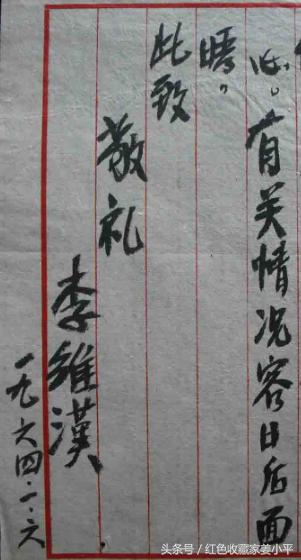 心。有关情况容日后面
晤。
此致
敬礼
李维漢
一九六四.一.六
头条号 / 红色收藏家姜小平